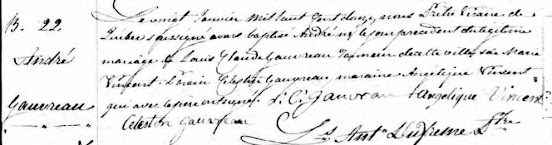 B. 22
André
Gauvreau
Le vingt Janvier mil huit cent douze, nous Prêtre Vicaire de
Québec soussigné avons baptisé André né le jour précédent du légitime
mariage de Louis Claude Gauvreau de cette ville & de Marie
Vincent. Parain Celestin Gauvreau, maraine Angelique Vincent
qui avec le père ont signé. L: C: Gauvrau Angelique Vincent
Celestin Gauvreau
Ls Antn Dufresne Ptre